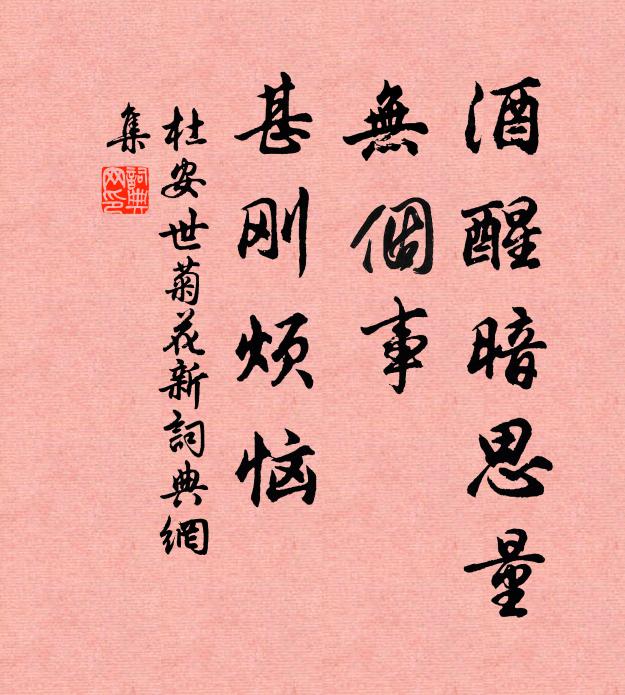 酒醒暗思量
無個事
甚刚烦恼
杜安世菊花新詞典網
集
詞典
网印